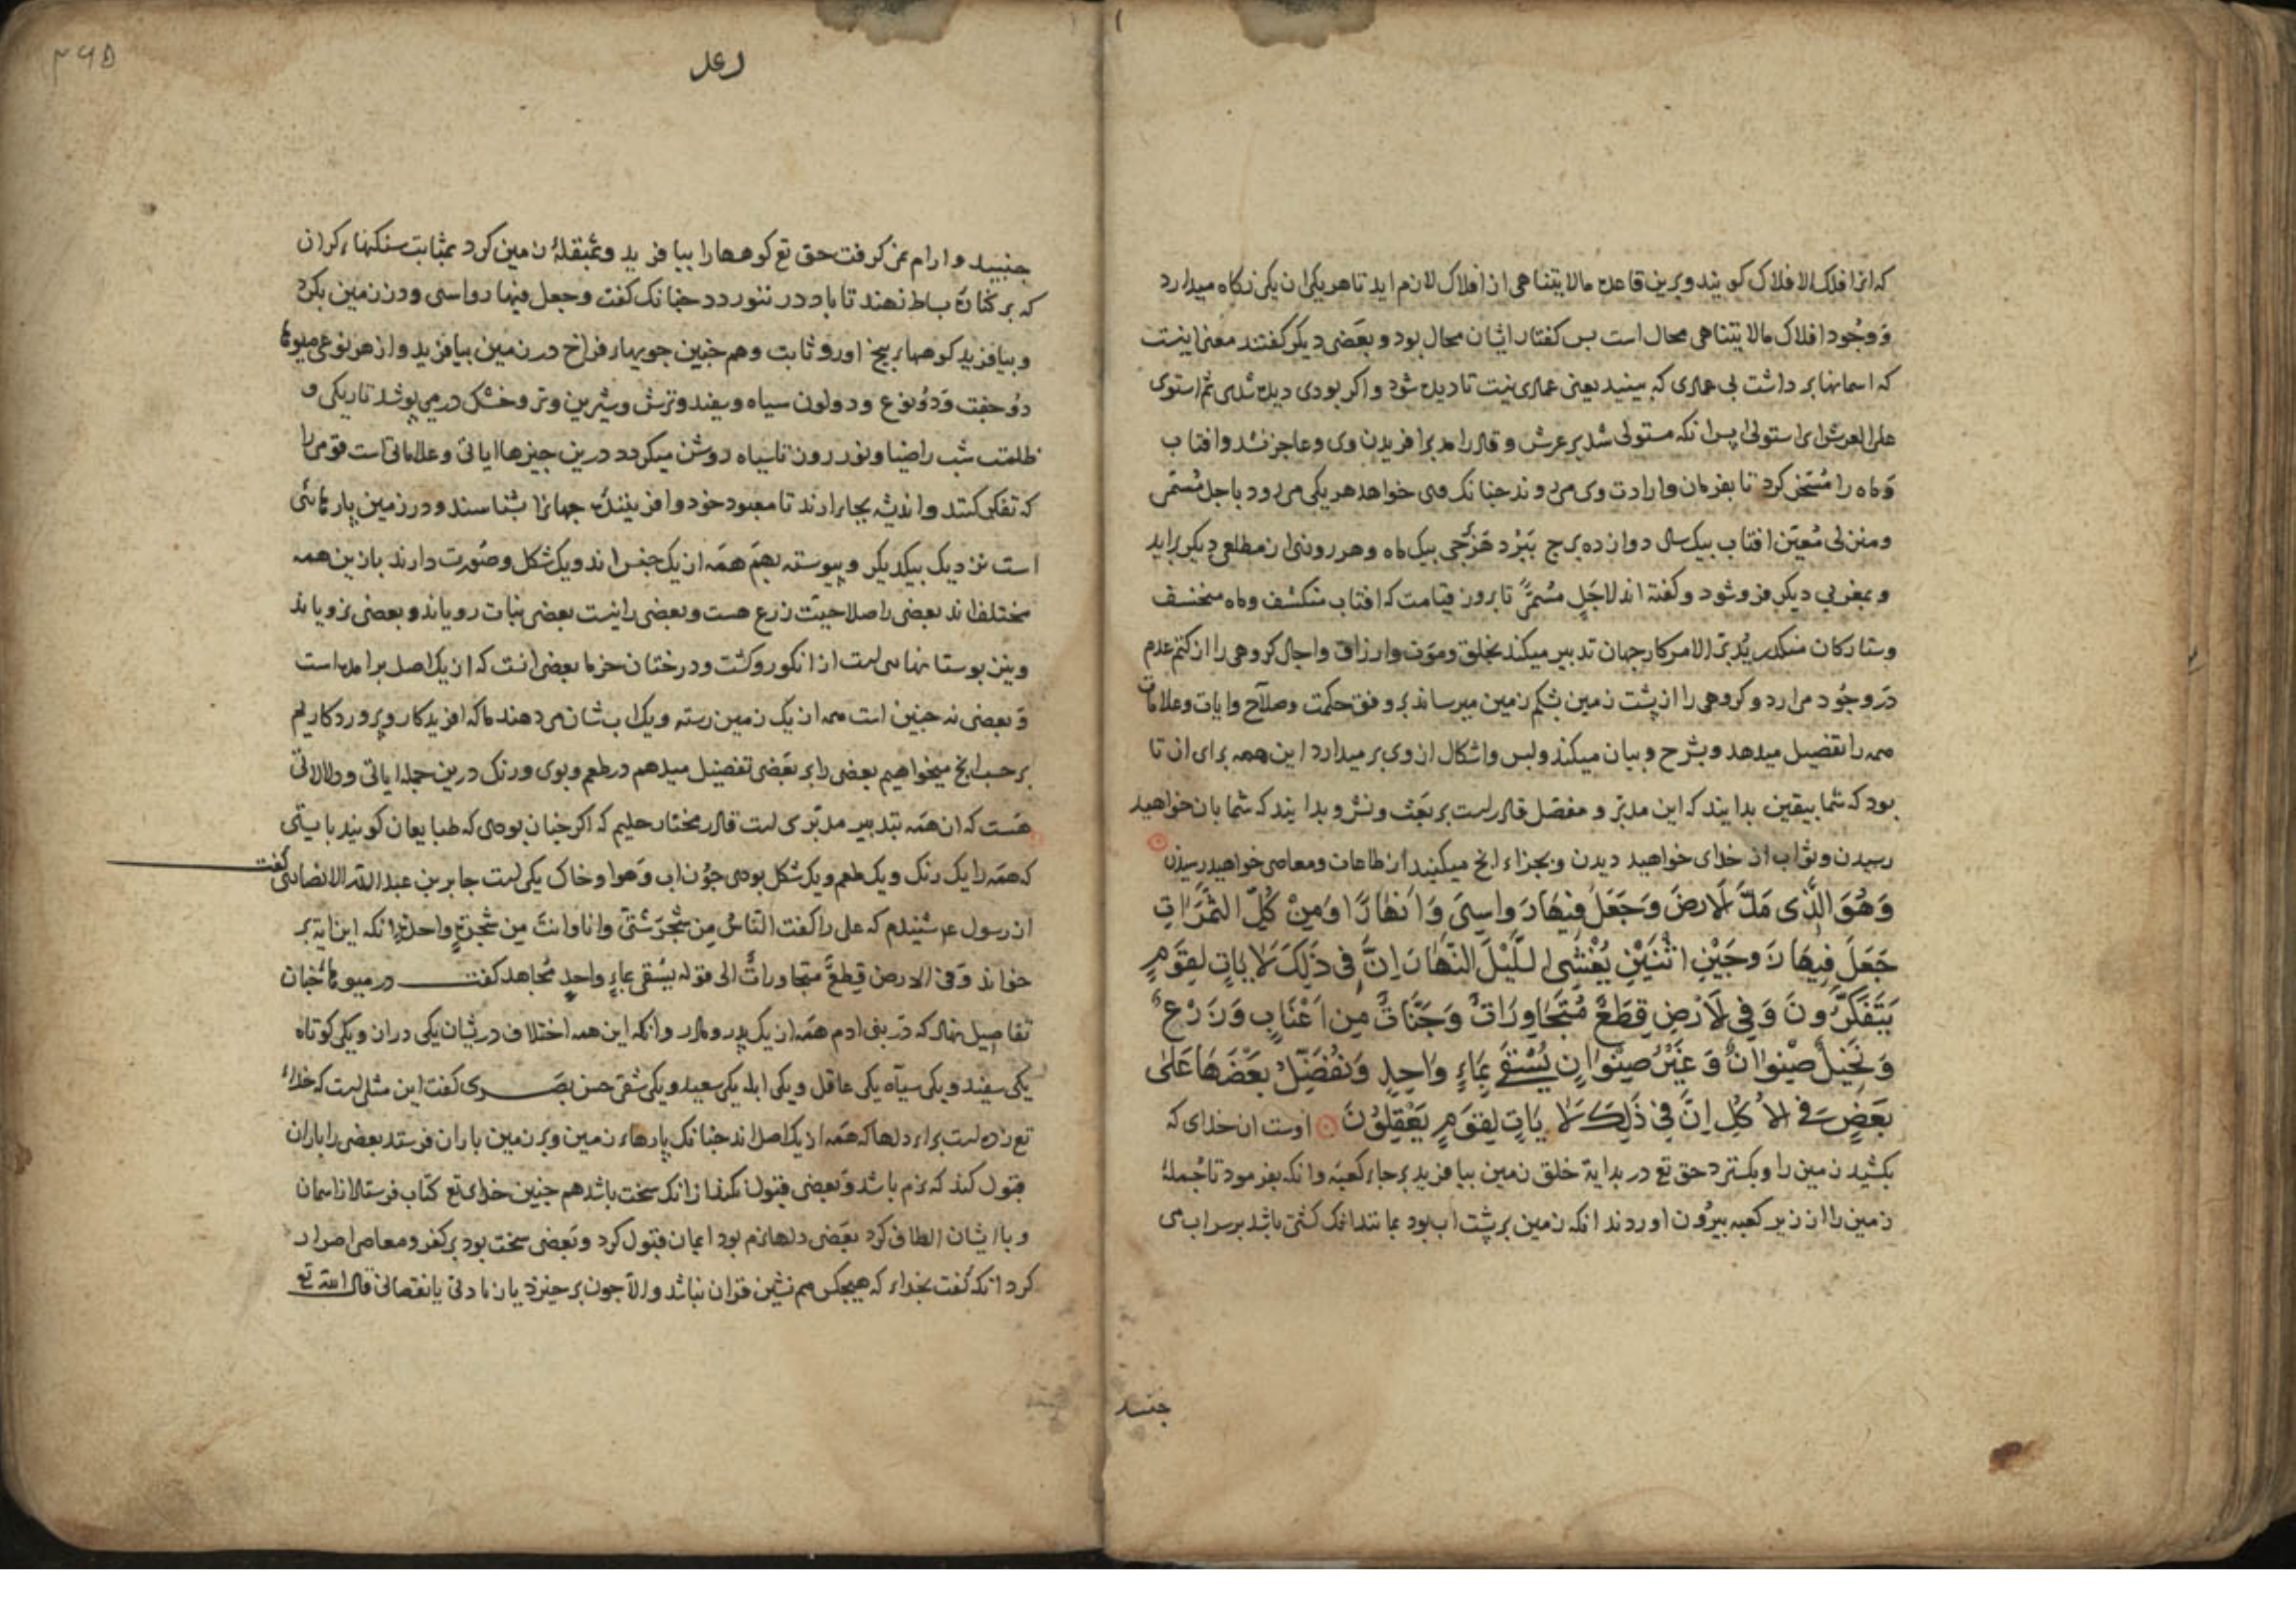 که انرا فلک الافلاک کویند و برین قاعده مالا یتناهی از افلاک لازم اید تا هر یکی ان یکی نکاه میدارد
وَ وجُود افلاک مالا یتناهی محال است بس کفتار ایشان محال بود و بعَضی دیکر کفتند معنی اینست
که اسمانها بر داشت بی عمادی که ببینید یعنی عمادی نیست تا دیده شود و اکر بودی دیده شدی ثم استوی
علی العرش ای استولی پس انکه مستولی شد بر عرش و قادر امد بر افریدن وی و عاجز نشد و افتاب
وَماه را مُسَخّر کرد تا بفرمان و ارادت وی می روند جنانک وی خواهد هر یکی می رود باجل مُسَمّی
و منزلی مُعیّن افتاب بیک سال دوازده برج ببُرد بیک ماه و هر روزی از مطلعی دیکر براید
و بمغربی دیکر فرو شود و کفته اند لاجَلٍ مسُمیًّ تا بروز قیامت که افتاب منکشف و ماه منخسف
و ستارکان منکدر یُدبّر الامر کار جهان تدبیر میکند بخلق و موَت و ارزاق و اجال کروهی را از کتم عدم
دَر وجُود می ارد و کروهی را از پشت زمین بشکم زمین میرساند بر وفق حکمت و صلاح و ایات و علامات
همه را تفصیل میدهد و شرح و بیان میکند و لبس و اشکال از وی بر میدارد این همه برای ان تا
بود که شما بیقین بدانید که این مدبّر و مفصّل قادرست بر بَعث و نشر و بدانید که شما بان خواهید
رسیدن و ثواب ان خدای خواهید دیدن و بجزاء انج میکنید از طاعات و معاصی خواهید رسیدن
وَهُوَ الَّذِی مَدَّ لَارضَ وَجَعَلَ فِیهَا رَواسِیَ وَاَنهَارًا وَمِنْ کُلِّ الثَّمَرَاتِ
جَعَلَ فِیهَا زَوجَیْنِ اثْنَیْنِ یُغْشِی الَّلیْلَ النَّهَارَ اِنَّ فِی ذَلِکَ لَایَاتٍ لِقَومٍ
یَتَفَکَّرُونَ وَفِی لَارْضِ قِطَعٌ مُتَجَاوِرَاتٌ وَجَنَّاتٌ مِن اَعْنَابٍ وَزَرْعٌ
وَنَخِیلٌ صِنْوَانٌ وَغَیْرُ صِنْوَانٍ یُسْقَی بِمَاءٍ وَاحِدٍ وَنُفَضِّلُ بَعْضَهَا عَلَی
بَعْضٍ فی الاُکُلِ اِنَّ فِی ذَلِکَ لَایَاتٍ لِقَومٍ یَعْقِلُونَ اوست ان خدای که
بکشید زمین را و بکسترد حق تع در بدایة خلق زمین بیافرید بر جاء کعبَه و انکه بفرمود تا جُملهٔ
زمین را از زیر کعبه بیرُون اوردند انکه زمین بر پشت اب بود بمانند انک کشتی باشد بر سر اب می
جنبید
رعد
۳۶۵
جنبید و ارام نمی کرفت حق تع کوهها را بیافرید و بمثقلهٔ زمین کرد بمثابت سنکهاء کران
که بر کنارهٔ بساط نهند تا باد در ننوردد جنانک کفت وجعل فیها رواسی و در زمین بکرد
و بیافرید کوهها بیخ اور و ثابت و هم جنین جویهاء فراخ در زمین بیافرید و از هر نوعی میوها
دو جفت وَ دوُ نوع و دو لون سیاه و سفید و ترش و شیرین و تر و خشک در می پوشد تاریکی و
ظلمت شب را ضیا و نور روز تا سیاه روشن میکردد درین جیزها ایاتی و علاماتی است قومی را
که تفکر کنند و اندیشه بجای ارند تا معبود خود و افرینندهٔ جهانرا بشناسند و در زمین پارهائی
است نزدیک بیکدیکر و پیوسته بهم همَه از یک جنس اند و یک شکل و صُورت دارند با زین همه
مختلف اند بعضی را صلاحیّت زرع هست و بعضی را نیست بعضی نبات رویاند و بعضی نرویاند
و نیز بوستانهایی است از انکور و کشت و درختان خرما بعضی انست که از یک اصل برامده است
وَ بعضی نه جنین است همه از یک زمین رسته و یک اب شان می دهند ما که افریدکار و پروردکاریم
بر حسب انج میخواهیم بعضی را بر بعَضی تفضیل میدهم در طعم و بوی و رنک درین جمله ایاتی و دلالاتی
هَست که ان همَه بتدبیر مدبّری است قادر مختار حلیم که اکر جنان بودی که طبایعیان کویند بایستی
که همَه را یک رنک و یک طعم و یک شکل بودی جوُن اب وَ هوا و خاک یکی است جابر بن عبد الله الانصاری کفت
از رسول ع شنیدم که علی را کفت النّاسُ مِن شَجَرٍ شَتّی وانا وانتَ مِن شَجرةٍ واحدةٍ انکه این ایة بر
خواند وَفی الارض قِطعٌ متجاوراتٌ الی قوله یسُقی بماءٍ واحدٍ مُجاهد کفت در میوها جنان
تفاصیل نهاد که دَر بنی ادم همَه از یک پدر و مادر و انکه این همه اختلاف در یشان یکی دراز و یکی کوتاه
یکی سفید و یکی سیآه یکی عاقل و یکی ابله یکی سعید و یکی شقی حسن بصَری کفت این مثلی است که خداء
تع زده است براء دلها که همَه از یک اصل اند جنانک پارهاء زمین و بر زمین باران فرستد بعضی را باران
قبَول کند که نرم باشد وَ بعضی قبول نکند ازانک سخت باشد هم جنین خداء تع کتاب فرستاد از اسمان
و با ایشان الطاف کرد بعَضی دلها نرم بود ایمان قبول کرد و بعَضی سخت بود بر کفر و معاصی اصرار
کرد انکه کفت بخداء که هیجکس هم نشین قران نباشد و الّا جون بر خیزد یا زیادتی یا نقصانی قال الله تع